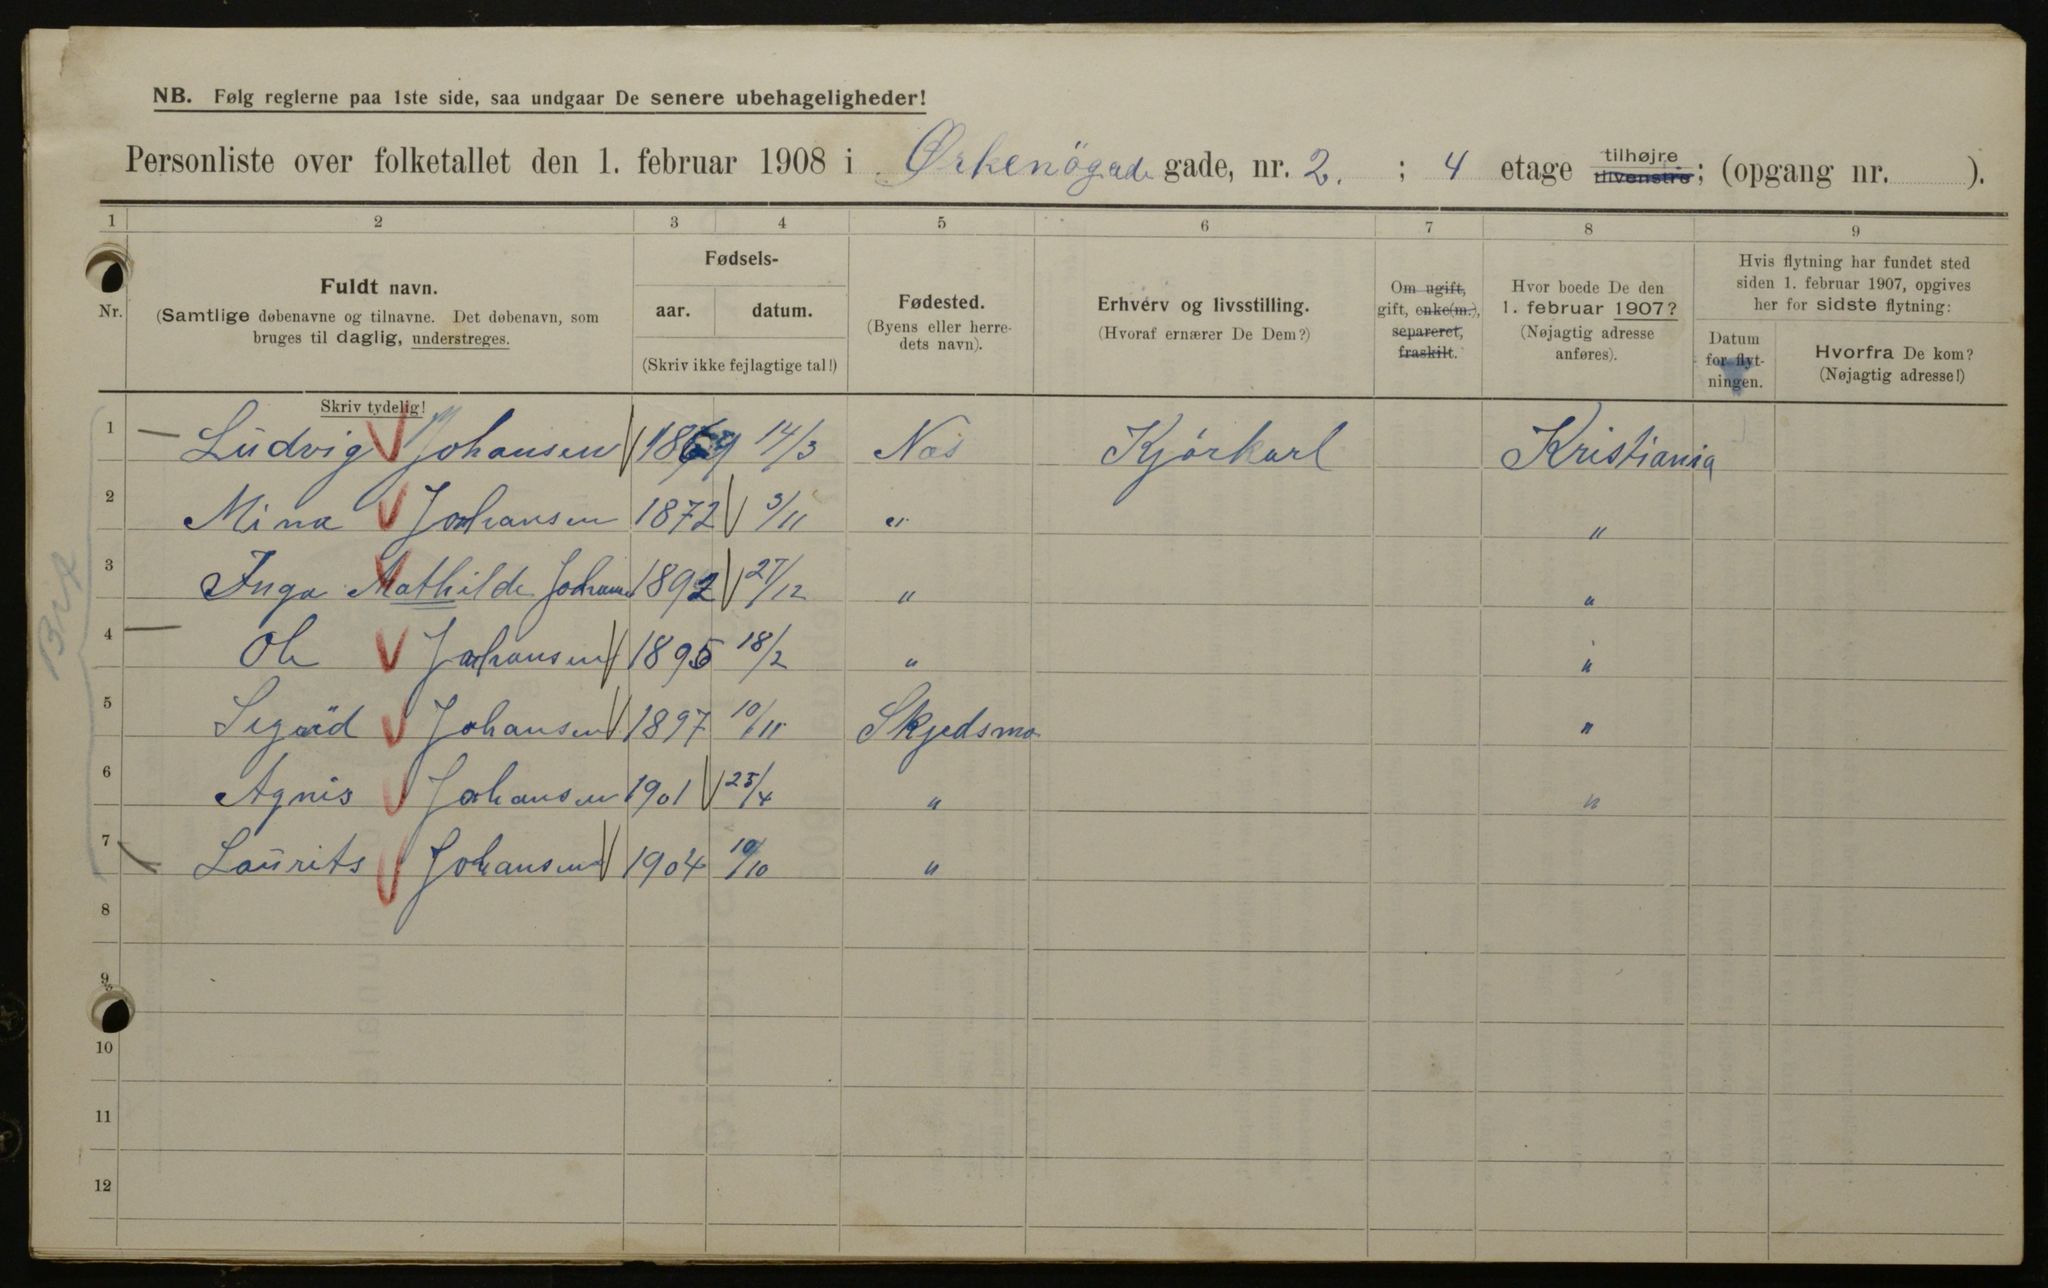 NB. Følg reglerne paa 1ste side, saa undgaar De senere ubehageligheder!
Personliste over folketallet den 1. februar 1908 i Ørkenögade gade, nr. 2. ; 4 etage tilhøjre tilvenstre; (opgang nr. ).
1 2 3 4 5 6 7 8 9
Nr.
Fuldt navn.
(Samtlige døbenavne og tilnavne. Det døbenavn, som
bruges til daglig, understreges.
Skriv tydelig!
Fødsels-
aar. datum.
(Skriv ikke fejlagtige tal!)
Fødested.
(Byens eller herre-
dets navn).
Erhverv og livsstilling.
(Hvoraf ernærer De Dem?)
Om ugift,
gift, enke(m.),
separeret,
fraskilt.
Hvor boede De den
1. februar 1907?
(Nøjagtig adresse
anføres).
Hvis flytning har fundet sted
siden 1. februar 1907, opgives
her for sidste flytning:
Datum
for flyt-
ningen.
Hvorfra De kom?
(Nøjagtig adresse!)
1 Ludvig Johansen 14/3 Næs Kjörkarl Kristiania
2 Mina Johansen 1872 3/11 " "
3 Inga Mathilde Johansen 1892 27/12 " "
4 Ole Johansen 1895 18/2 " "
5 Sigurd Johansen 1897 10/11 Skjedsmo "
6 Agnis Johansen 1901 25/4 " "
7 Laurits Johansen 1904 10/10 "
8
9
10
11
12